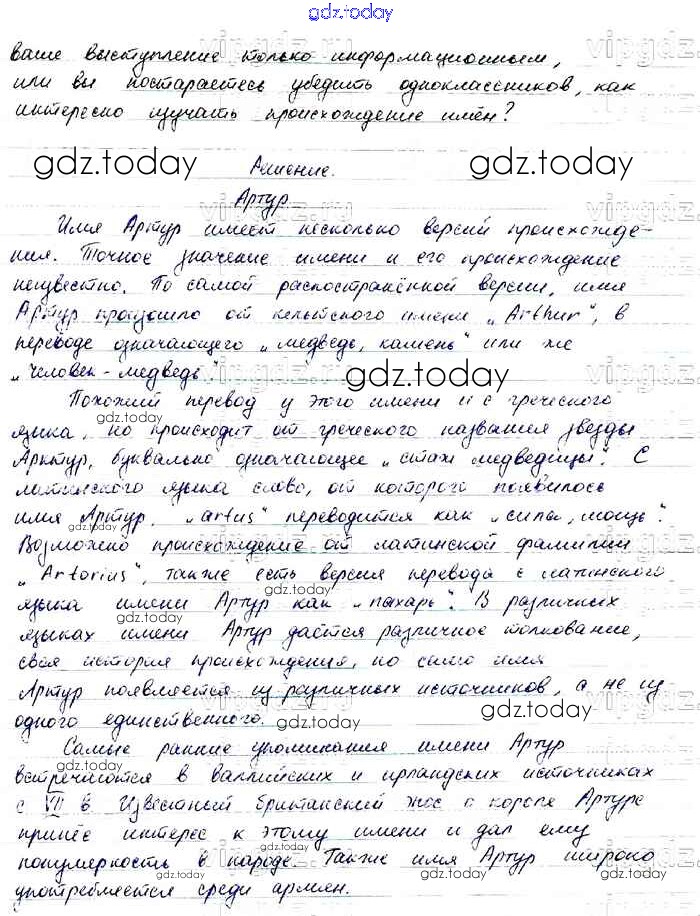 gdz.today
ваше выступление только информационным,
или вы постараетесь убедить одноклассников, как
интересно изучать происхождение имён?
gdz.today gdz.today
Решение.
Артур
Имя Артур имеет несколько версий происхожде-
ния. Точное значение имени и его происхождение
неизвестно. По самой распостранённой версии, имя
Артур произошло от кельтского имени „Arthur“, в
переводе означающего „медведь, камень“ или же
„человек-медведь“
gdz.today
Похожий перевод у этого имени и с греческого
gdz.today
языка, но происходит от греческого названия звезды
Арктур, буквально означающее „страж медведицы“. С
латинского языка слово, от которого появилось
имя Артур, „artus“ переводится как „сила, мощь“.
gdz.today
Возможно происхождение от латинской фамилии
„Artorius“, также есть версия перевода с латинского
языка имени Артур как „пахарь“. В различных
gdz.today
языках имени Артур даётся различное толкование,
своя история происхождения, но само имя
Артур появляется из различных источников, а не из
одного единственного.
gdz.today gdz.today
Самые ранние упоминания имени Артур
встречаются в валлийских и ирландских источниках
с VII в. Известный британский эпос о короле Артуре
принёс интерес к этому имени и дал ему
популярность в народе. Также имя Артур широко
gdz.today gdz.today
употребляется среди армян.